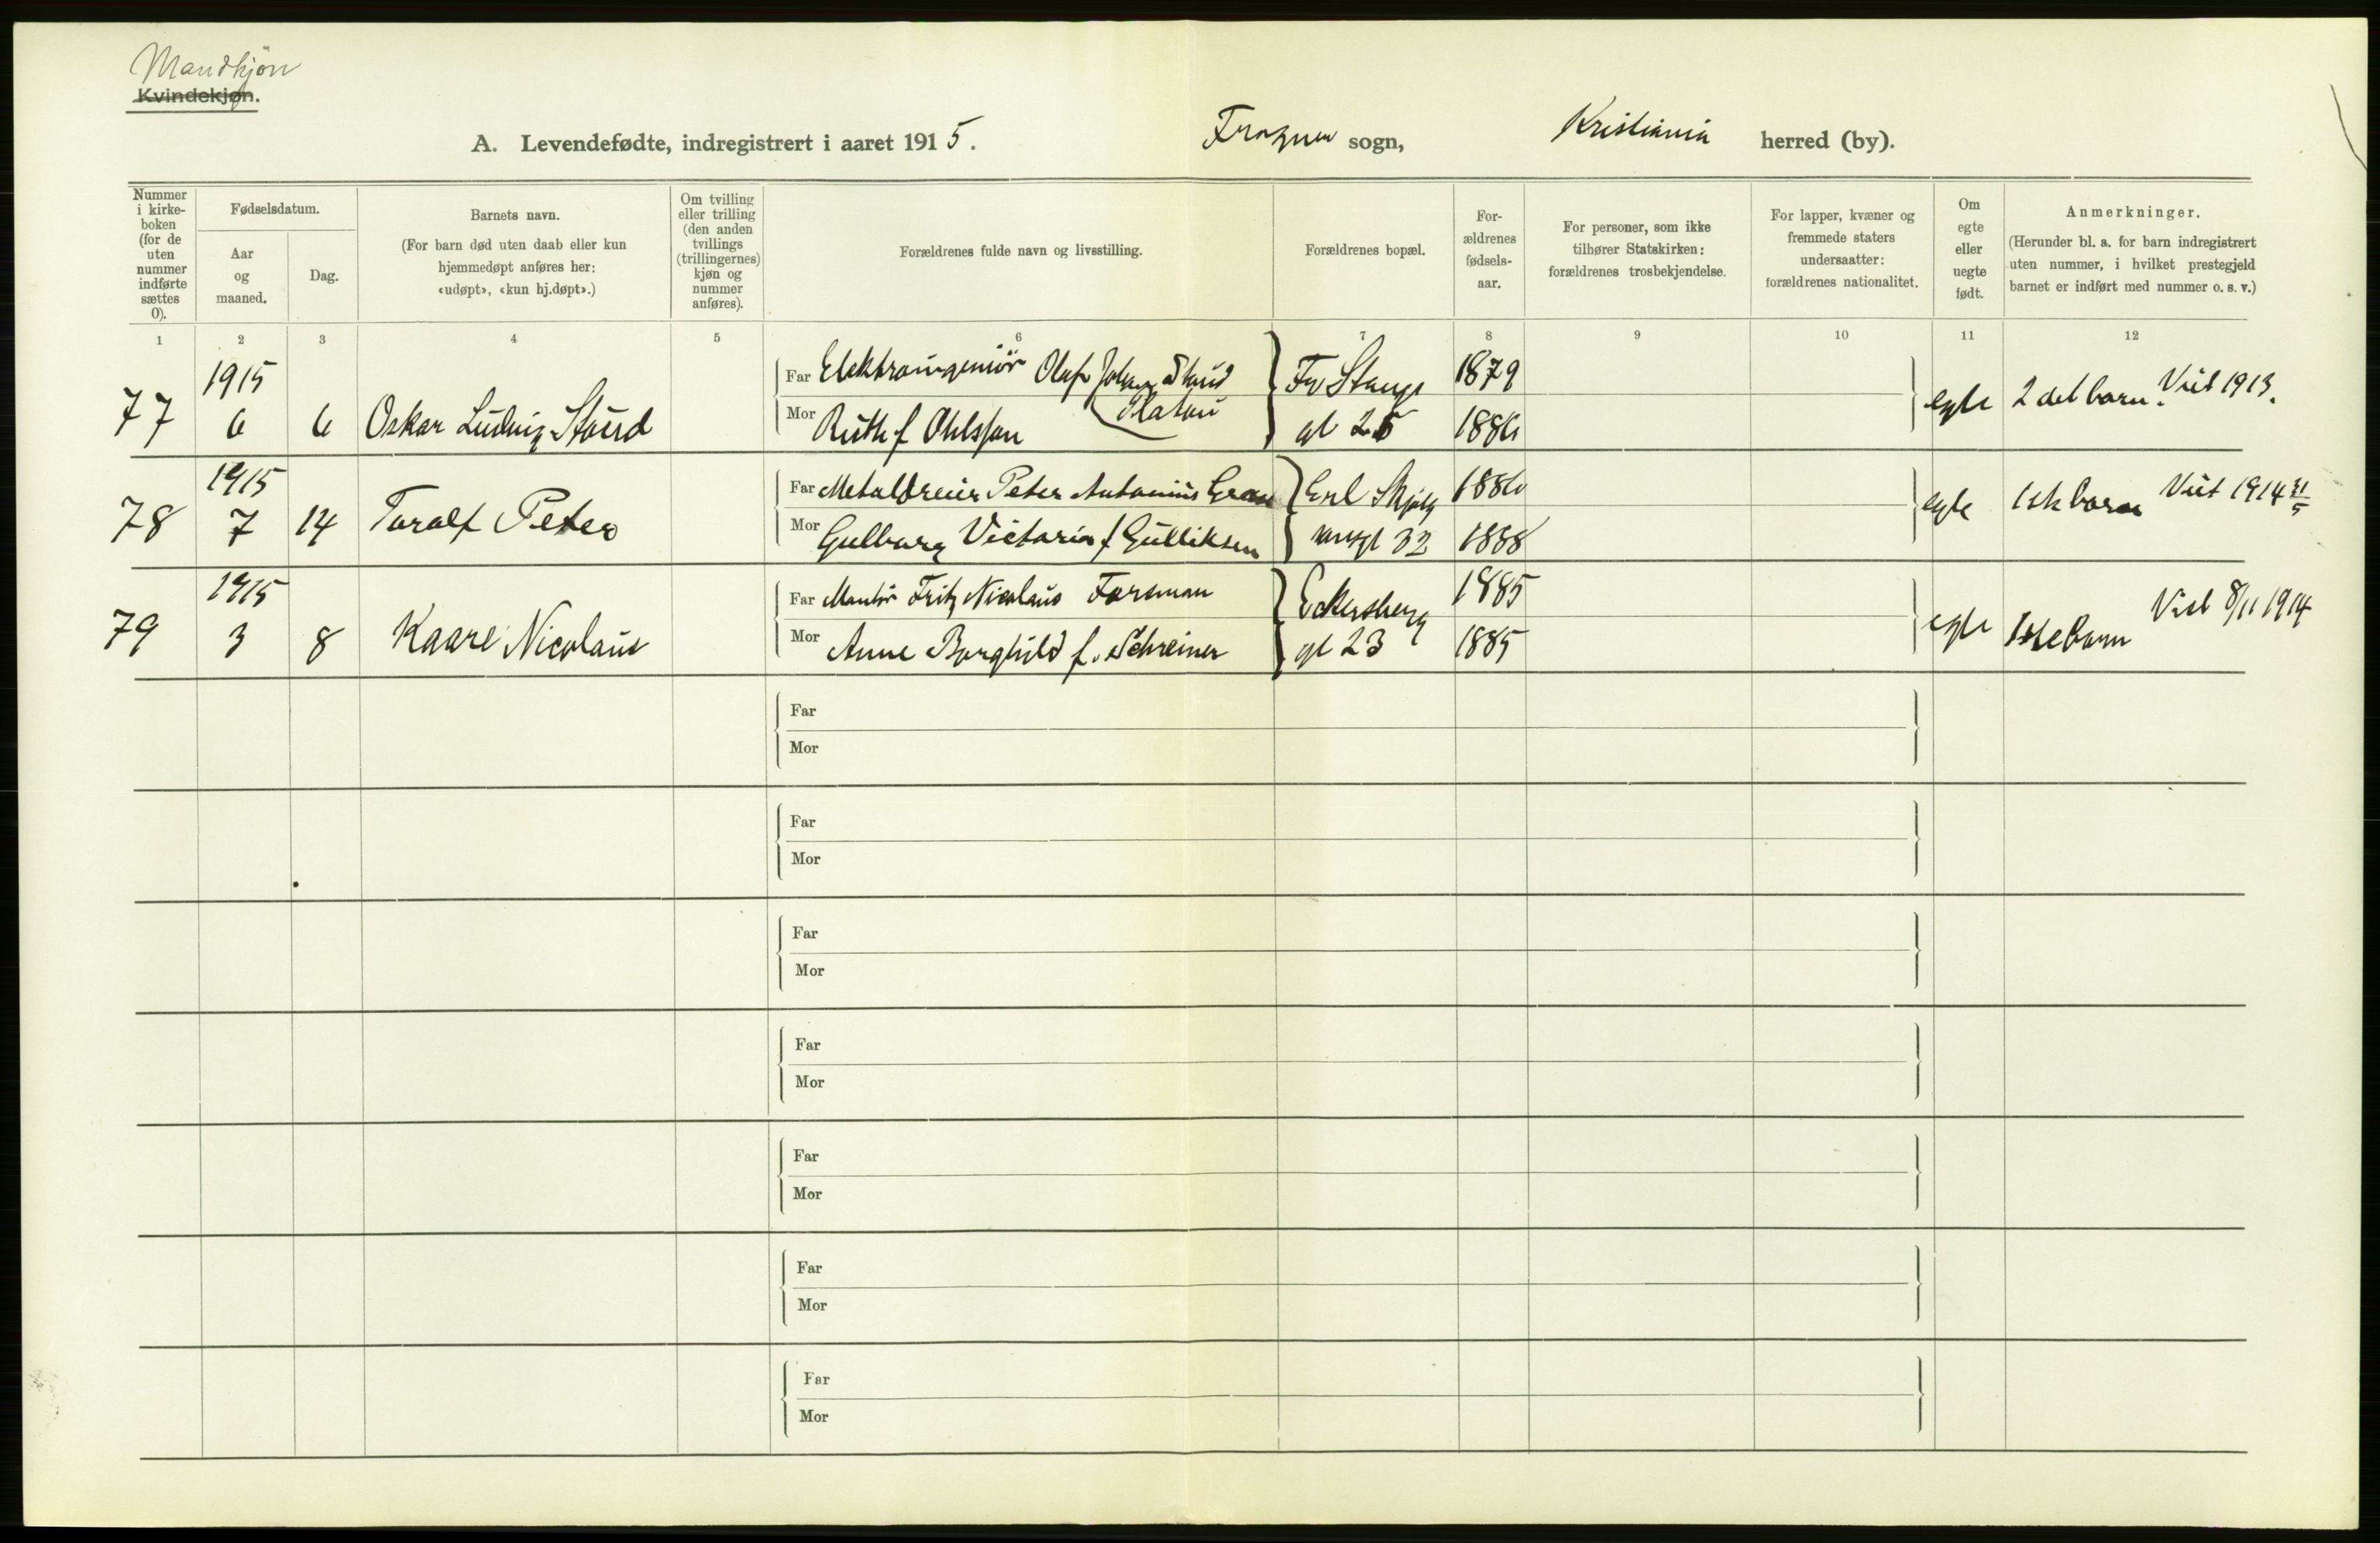 Mandkjøn
Kvindekjøn.
A. Levendefødte, indregistrert i aaret 1915. Frogner sogn, Kristiania herred (by).
Nummer i kirke-boken (for de uten nummer indførte sættes 0).
Fødselsdatum.
Aar og maaned.
Dag.
Barnets navn.
(For barn død uten daab eller kun hjemmedøpt anføres her: «udøpt», «kun hj.døpt».)
Om tvilling eller trilling (den anden tvillings (trillingernes) kjøn og nummer anføres).
Forældrenes fulde navn og livsstilling.
Forældrenes bopæl.
For-ældrenes fødsels-aar.
For personer, som ikke tilhører Statskirken: forældrenes trosbekjendelse.
For lapper, kvæner og fremmede staters undersaatter: forældrenes nationalitet.
Om egte eller uegte født.
Anmerkninger.
(Herunder bl. a. for barn indregistrert uten nummer, i hvilket prestegjeld barnet er indført med nummer o. s. v.)
1 2 3 4 5 6 7 8 9 10 11 12
77 1915 6 6 Oskar Ludvig Staud
Far Elektroingeniör Olaf Johan Staud
Mor Ruth f Ohlsson
Fr Stangs gt 25
1879
1886
egte 2det barn. Viet 1913.
78 1915 7 14 Toralf Peter
Far Metaldreier Peter Antonius Gran
Mor Gulborg Victoria f Gulliksen
Erl Skjalgsonsgt 32
1886
1888
egte 1ste barn Viet 1914 31/5
79 1915 3 8 Kaare Nicolaus
Far Montör Fritz Nicolaus Forsman
Mor Anne Borghild f. Schreiner
Eckersberg gt 23
1885
1885
egte 1ste barn Viet 8/11 1914
Far
Mor
Far
Mor
Far
Mor
Far
Mor
Far
Mor
Far
Mor
Far
Mor